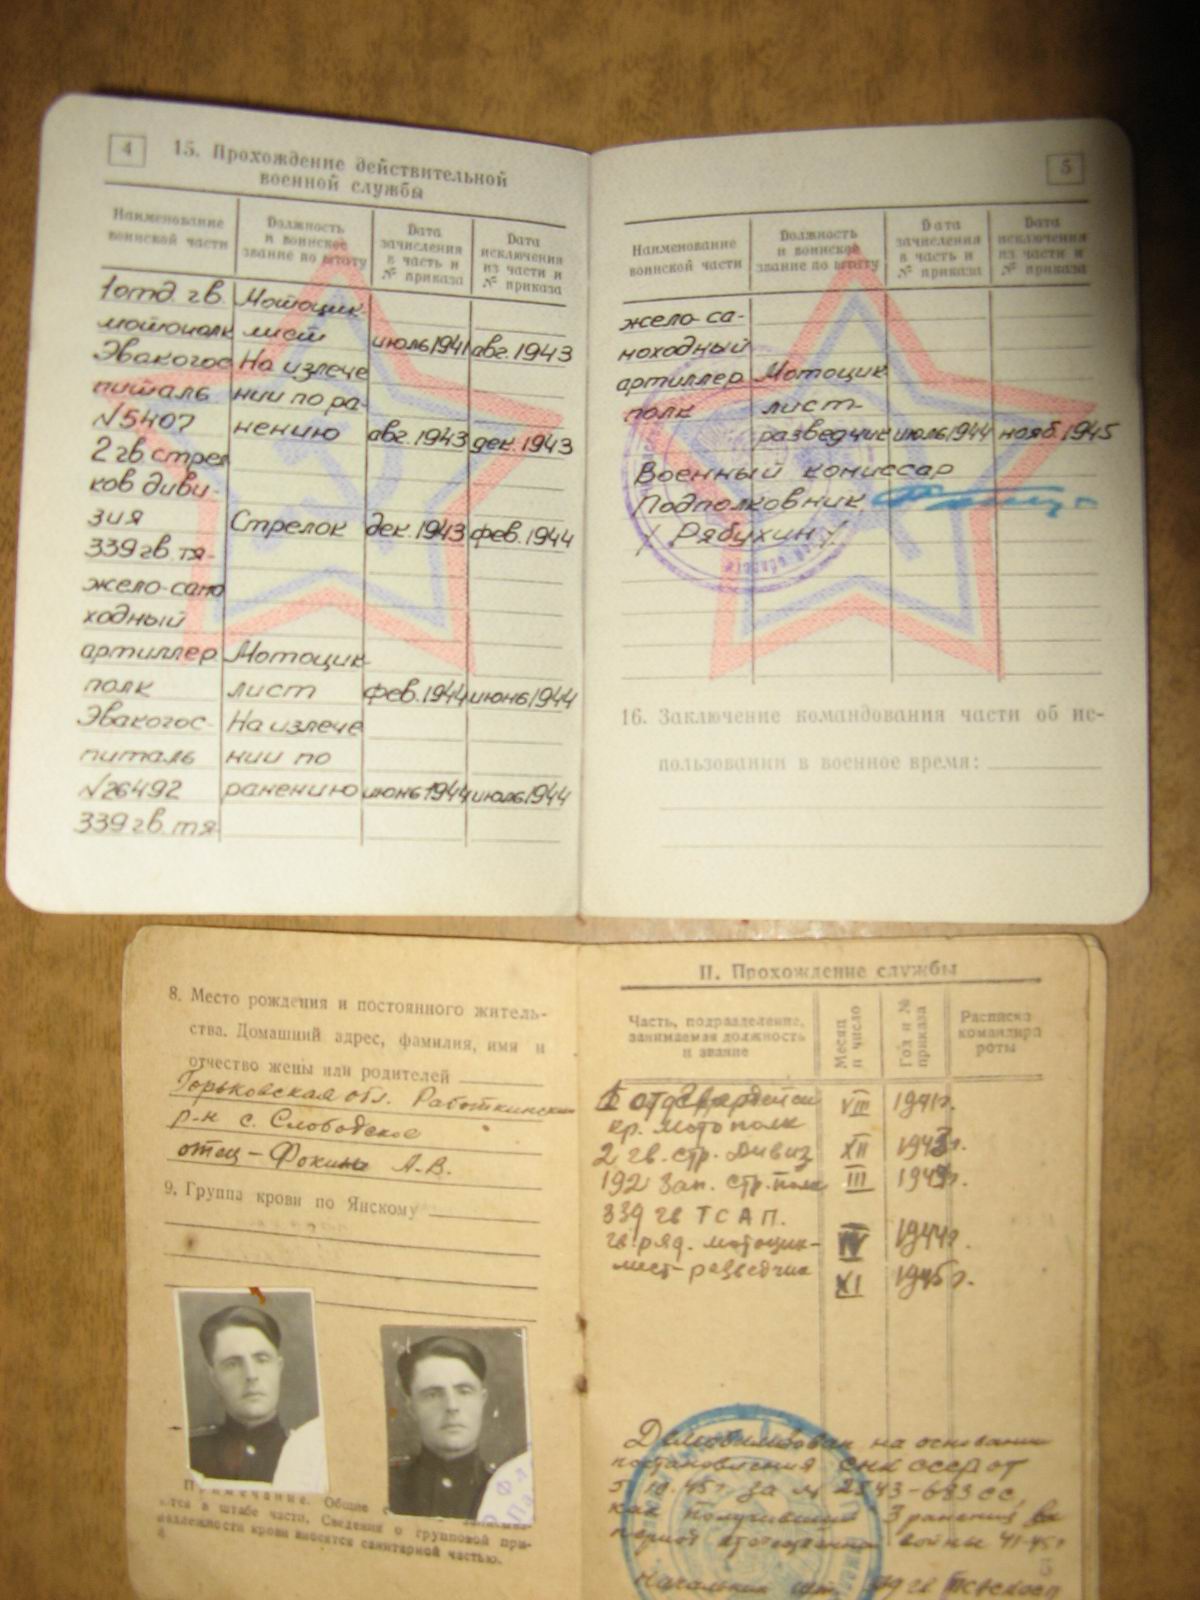 4
15. Прохождение действительной
военной службы
Наименование
воинской части
Должность
и воинское
звание по штату
Дата
зачисления
в часть и
№ приказа
Дата
исключения
из части и
№ приказа
1 отд. гв. Мотоцик-
мотополк лист июль 1941 авг. 1943
Эвакогос На излече
питаль нии по ра-
№5407 нению авг. 1943 дек. 1943
2 гв. стрел
ков диви-
зия Стрелок дек. 1943 фев. 1944
339 гв. тя-
жело-само
ходный
артиллер Мотоцик-
полк лист фев. 1944 июнь 1944
Эвакогос- На излече
питаль нии по
№26492 ранению июнь 1944 июль 1944
339 гв. тя-
5
Наименование
воинской части
Должность
и воинское
звание по штату
Дата
зачисления
в часть и
№ приказа
Дата
исключения
из части и
№ приказа
жело-са-
моходный
артиллер Мотоцик-
полк лист-
разведчик июль 1944 нояб. 1945
Военный комиссар
Подполковник
/ Рябухин /
16. Заключение командования части об ис-
пользовании в военное время:
8. Место рождения и постоянного житель-
ства. Домашний адрес, фамилия, имя и
отчество жены или родителей
Горьковская обл. Работкинский
р-н с. Слободское
отец – Фокин А.В.
9. Группа крови по Янскому
Примечание. Общие
в штабе части. Сведения о групповой при-
надлежности крови вносятся санитарной частью.
II. Прохождение службы
Часть, подразделение,
занимаемая должность
и звание
Месяц
и число
Год и №
приказа
Расписка
командира
роты
1 отд. VIII 1941г.
кр. мотополк
2 гв. стр. дивиз XII 1943г.
192 зап. стр. полк III
339 гв ТСАП.
гв. ряд. мотоцик- IV 1944г.
лист-разведчик XI 1945г.
Демобилизован на основании
постановления СНК СССР от
за №
как получивший 3 ранения в
период отечественной войны 41-45г
Начальник шт. 339 гв
5